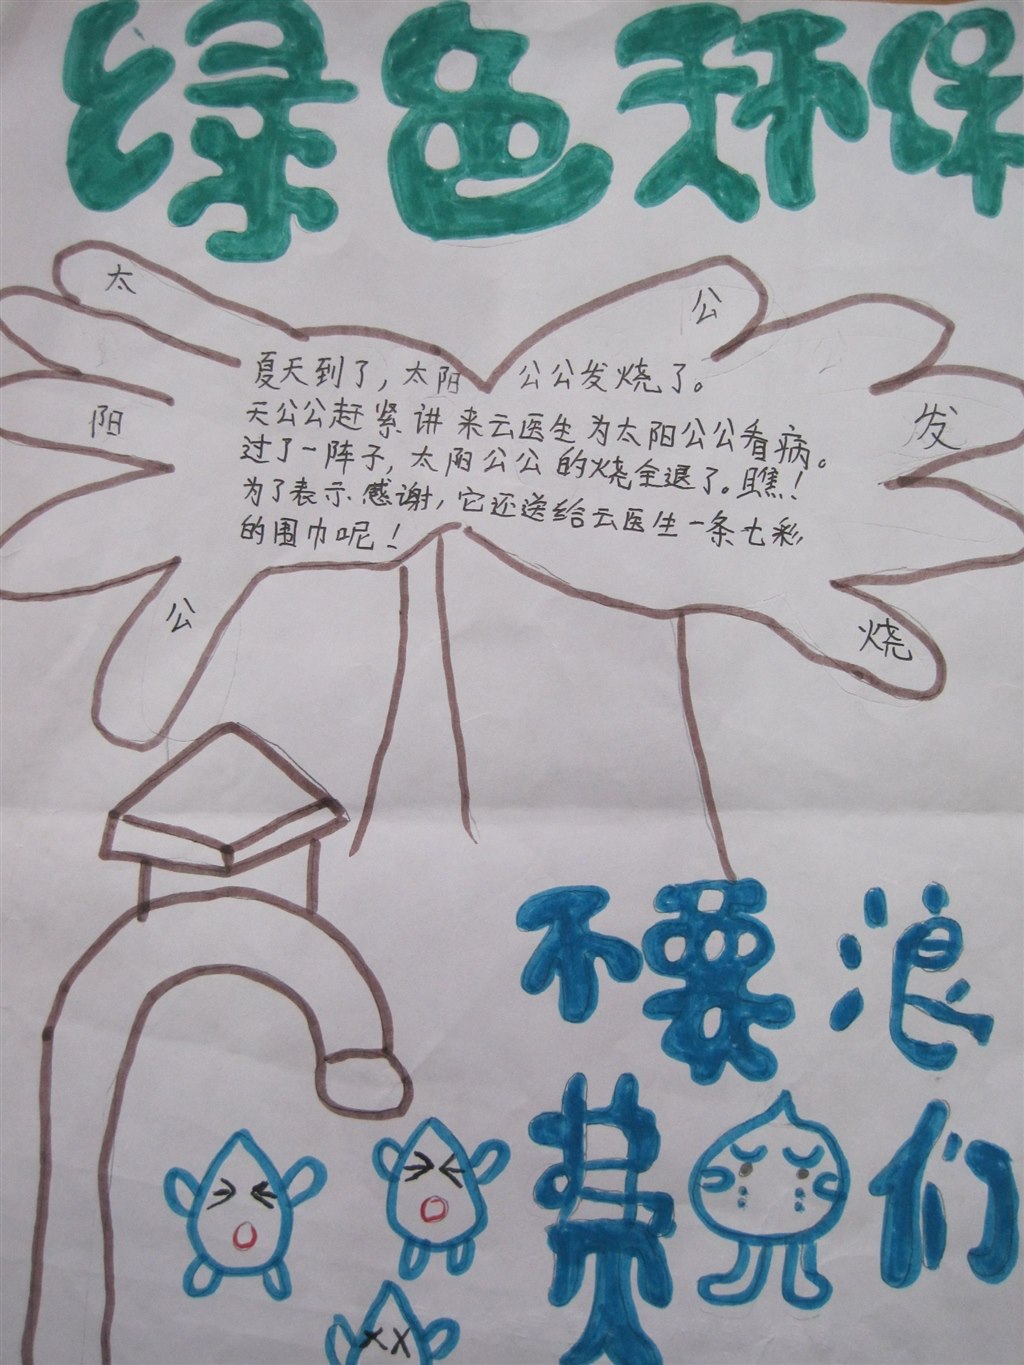 绿色环保
太阳公公发烧
夏天到了，太阳公公发烧了。
天公公赶紧讲来云医生为太阳公公看病。
过了一阵子，太阳公公的烧全退了。瞧！
为了表示感谢，它还送给云医生一条七彩
的围巾呢！
不要浪
费们